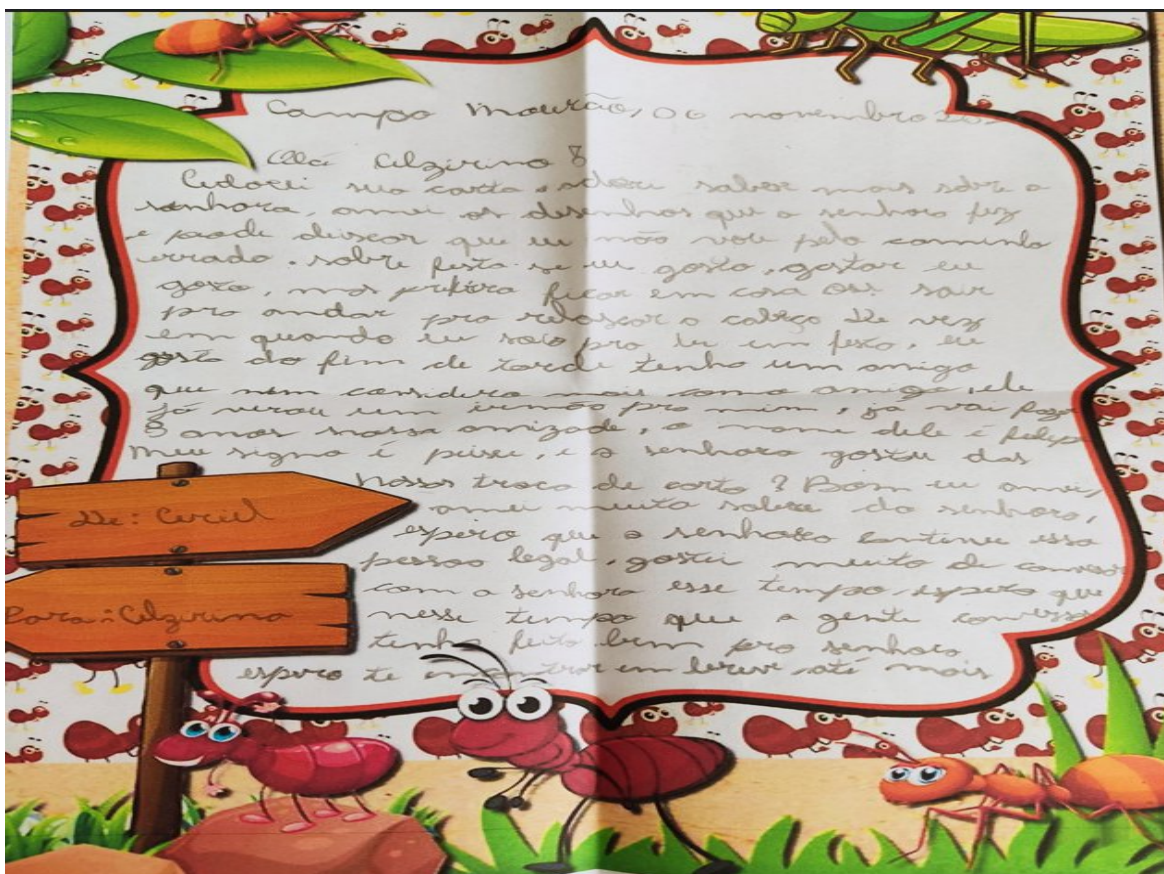 Campo Mourão, 06 novembro
Olá Alzirina
Adorei sua carta, adorei saber mais sobre a
senhora, amei os desenhos que a senhora fez
e pode deixar que eu não vou pelo caminho
errado. sobre festa se eu gosto, gostar eu
goso, mas prefiro ficar em casa ou sair
pra andar pra relaxar a cabeça De vez
em quando eu saio pra ir em festa, eu
gosto do fim de tarde tenho um amigo
que nem considero mais como amigo, ele
já virou um irmão pra mim, ja vai fazer
8 anos nossa amizade, o nome dele é felipe
Meu signo é peixe, e a senhora gostou das
nossas troca de carta? Bom eu amei,
De: Ceriel
amei muito saber da senhora,
espero que a senhora continue essa
pessoa legal, gostei muito de
Para: Alzirina
com a senhora esse tempo, espero que
nesse tempo que a gente
tenha feito bem pra senhora
espero te em breve, até mais